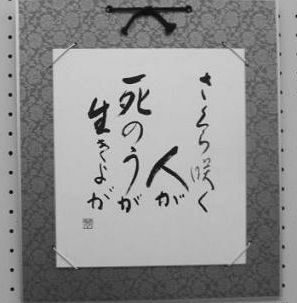 さくら咲く
人が
死のうが
生きよが